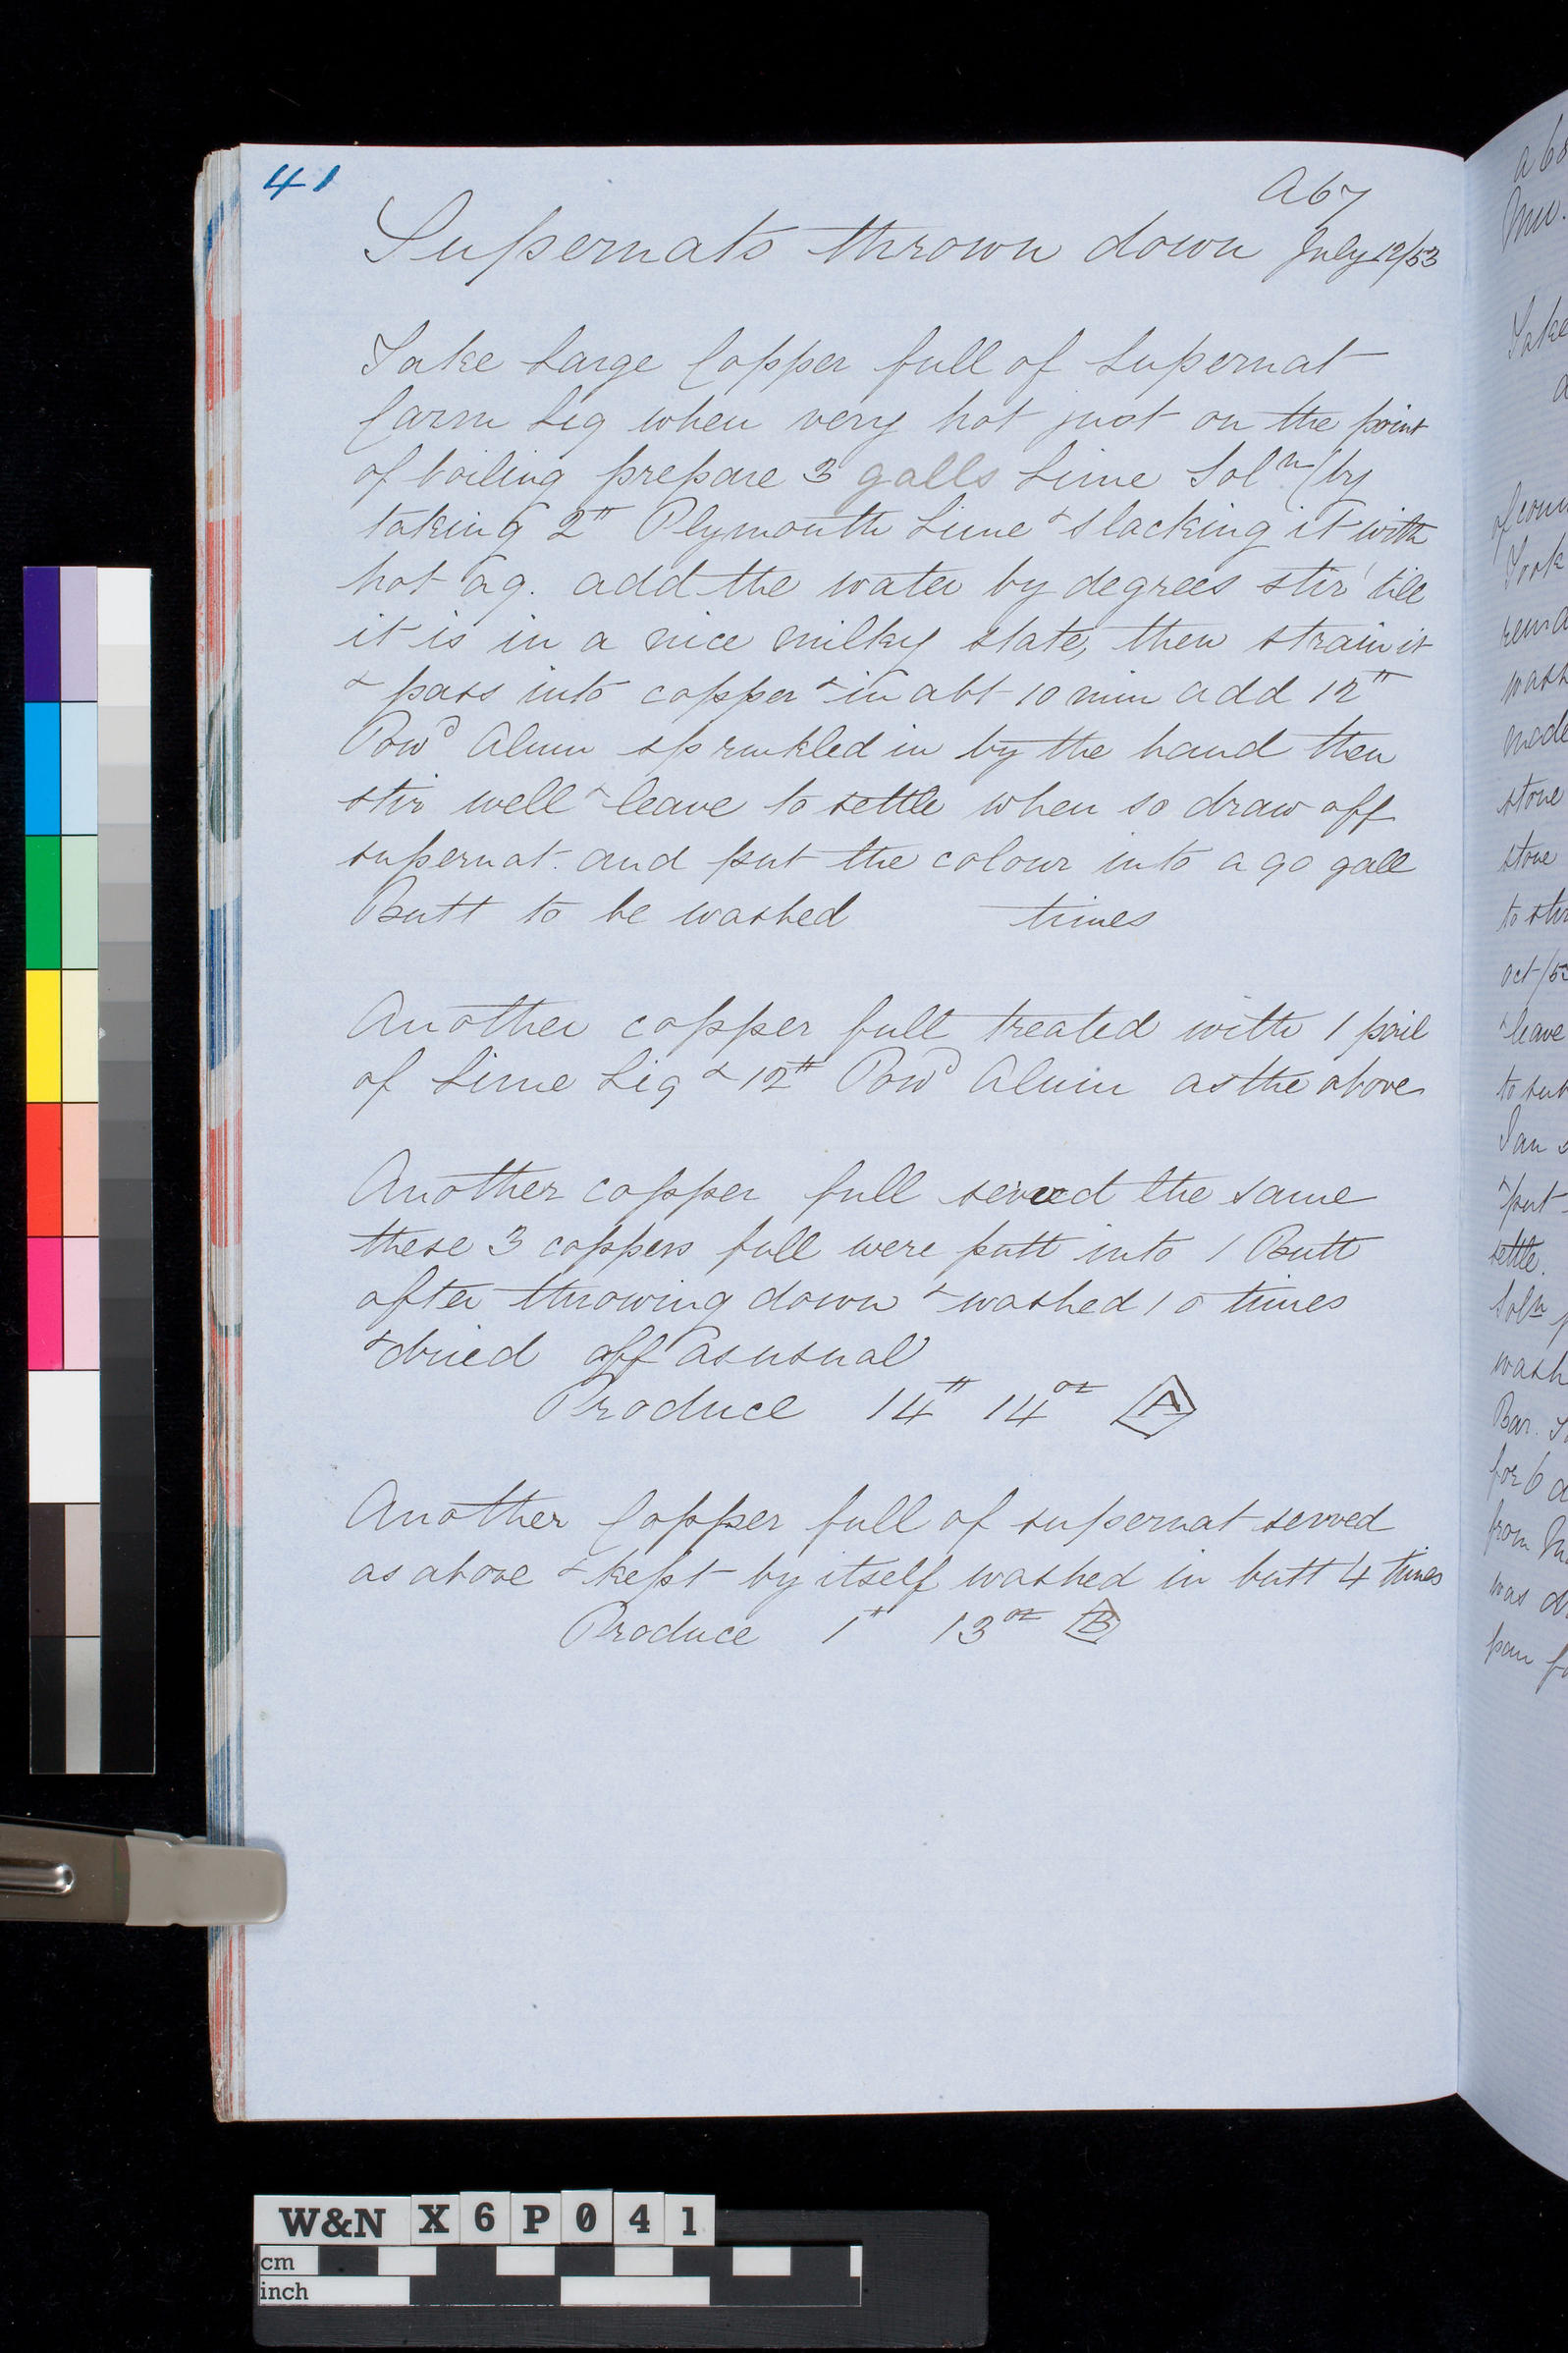 41
A67
Supernats thrown down July 12/53
Take Large Copper full of Supernat
Carm Liq when very hot just on the point
of boiling prepare 3 galls Lime Solⁿ (by
taking 2# Plymouth Lime & slacking it with
hot aq. add the water by degrees stir 'till
it is in a nice milky state, then strain it
& pass into copper & in abt 10 min add 12#
Powᵈ Alum sprinkled in by the hand then
stir well & leave to settle when so draw off
supernat. and put the colour into a 90 gall
Butt to be washed times
Another copper full treated with 1 pail
of Lime Liq & 12# Powᵈ Alum as the above
Another copper full served the same
these 3 coppers full were putt into 1 Butt
after throwing down & washed 10 times
& dried off as usual
Produce 14# 14oz A
Another Copper full of supernat served
as above & kept by itself washed in butt 4 times
Produce 1# 13oz B
a 68
Take
Took
made
stove
stove
to stir
Oct/53
& leave
& put
settle.
Solⁿ
wash
Bar.
for 6
from
was
pan
W&N X6P041
cm
inch